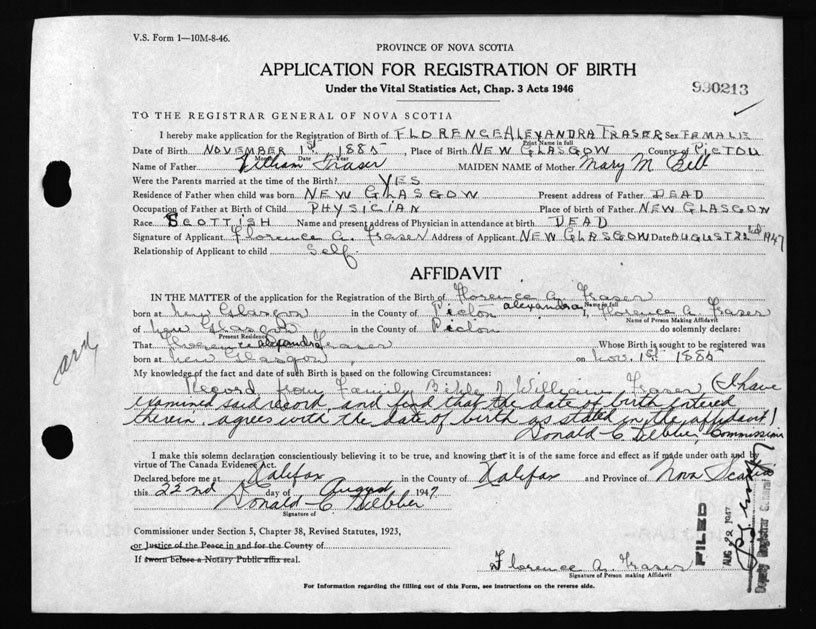 V.S. Form 1—10M-8-46.
PROVINCE OF NOVA SCOTIA
APPLICATION FOR REGISTRATION OF BIRTH
Under the Vital Statistics Act, Chap. 3 Acts 1946
990213
TO THE REGISTRAR GENERAL OF NOVA SCOTIA
I hereby make application for the Registration of Birth of FLORENCE ALEXANDRA FRASER Sex FEMALE
Print Name in full
Date of Birth NOVEMBER 1st, 1885, Place of Birth NEW GLASGOW County of PICTOU
Month Date Year
Name of Father William Fraser MAIDEN NAME of Mother Mary M Bell
Were the Parents married at the time of the Birth? YES
Residence of Father when child was born NEW GLASGOW Present address of Father DEAD
Occupation of Father at Birth of Child PHYSICIAN Place of birth of Father NEW GLASGOW
Race SCOTTISH Name and present address of Physician in attendance at birth DEAD
Signature of Applicant Florence A. Fraser Address of Applicant NEW GLASGOW Date AUGUST 22nd 1947
Relationship of Applicant to child Self
AFFIDAVIT
IN THE MATTER of the application for the Registration of the Birth of Florence A. Fraser
Name in full
born at New Glasgow in the County of Pictou alexandra, Florence A. Fraser
Name of Person Making Affidavit
of New Glasgow in the County of Pictou do solemnly declare:
Present Residence
That Florence alexandra Fraser Whose Birth is sought to be registered was
born at New Glasgow, on Nov. 1st 1885
My knowledge of the fact and date of such Birth is based on the following Circumstances:
Record from Family Bible of William Fraser, (I have
examined said record, and find that the date of birth entered
therein, agrees with the date of birth as stated in the affidavit)
Donald C Commissioner
I make this solemn declaration conscientiously believing it to be true, and knowing that it is of the same force and effect as if made under oath and by
virtue of The Canada Evidence Act.
Declared before me at Halifax in the County of Halifax and Province of Nova Scotia
this 22nd day of August 1947.
Donald C
Signature of
Commissioner under Section 5, Chapter 38, Revised Statutes, 1923,
or Justice of the Peace in and for the County of
If sworn before a Notary Public affix seal.
Florence A. Fraser
Signature of Person making Affidavit
For Information regarding the filling out of this Form, see instructions on the reverse side.
FILED
AUG 22 1947
Deputy Registrar General